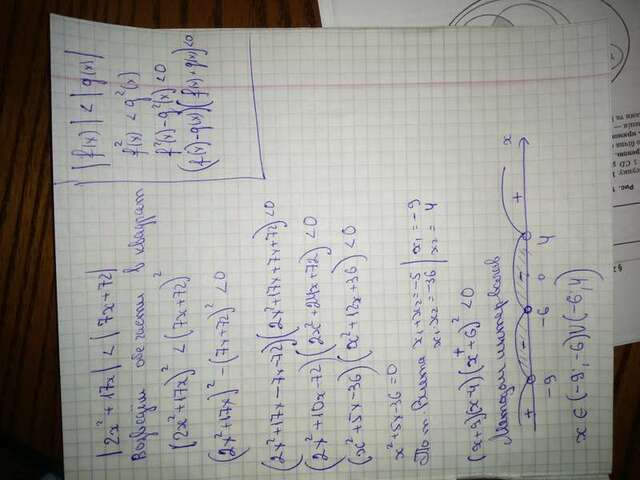 |2x²+17x| < |7x+72|
Возведём обе части в квадрат
(2x²+17x)² < (7x+72)²
(2x²+17x)² - (7x+72)² < 0
(2x²+17x-7x-72)(2x²+17x+7x+72) < 0
(2x²+10x-72)(2x²+24x+72) < 0
(x²+5x-36)(x²+12x+36) < 0
x²+5x-36=0
По т. Виета x₁+x₂=-5 | x₁=-9
x₁·x₂=-36 | x₂=4
(x+9)(x-4)(x+6)² < 0
Методом интервалов
+ - - + x
-9 -6 0 4
x ∈ (-9;-6)∪(-6;4)
|f(x)| < |g(x)|
f²(x) < g²(x)
f²(x)-g²(x) < 0
(f(x)-g(x))(f(x)+g(x)) < 0
Рис. 1